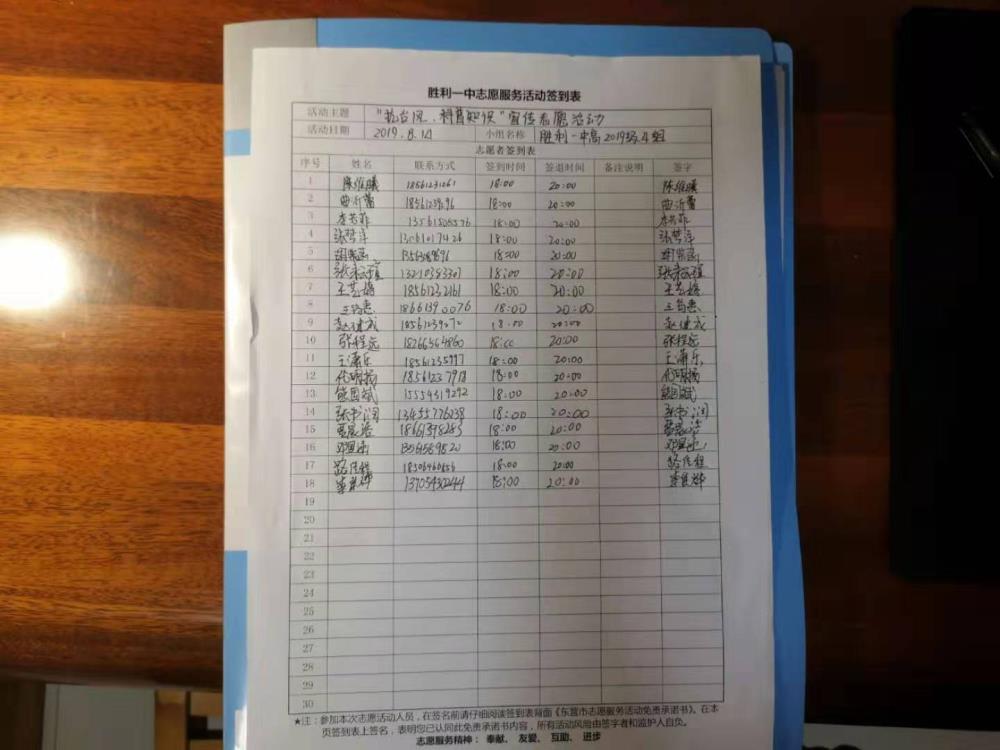 胜利一中志愿服务活动签到表
活动主题 "抗台风、科普知识"宣传志愿活动
活动日期 2019.8.14 小组名称 胜利一中高2019级4组
志愿者签到表
序号 姓名 联系方式 签到时间 签退时间 备注说明 签字
1 陈维曦 18561231261 18:00 20:00 陈维曦
2 曲沂蕾 18:00 20:00 曲沂蕾
3 18:00 20:00
4 张梦萍 13061017426 18:00 20:00 张梦萍
5 18:00 20:00
6 13210383307 18:00 20:00
7 王艺婷 18561232161 18:00 20:00 王艺婷
8 18661390076 18:00 20:00
9 赵健成 18561239272 18:00 20:00 赵健成
10 张程远 18266564860 18:00 20:00 张程远
11 王潇乐 18561235997 18:00 20:00 王潇乐
12 18561237918 18:00 20:00
13 熊国斌 15554319292 18:00 20:00 熊国斌
14 张书润 13455776238 18:00 20:00 张书润
15 18661398283 18:00 20:00
16 18:00 20:00
17 路佳程 18:00 20:00 路佳程
18 13705430244 18:00 20:00
19
20
21
22
23
24
25
26
27
28
29
30
★注：参加本次志愿活动人员，在签名前请仔细阅读签到表背面《东营市志愿服务活动免责承诺书》。在本
页签到表上签名，表明您已认同此免责承诺书内容，所有活动风险由签字者和监护人自负。
志愿服务精神： 奉献、 友爱、 互助、 进步